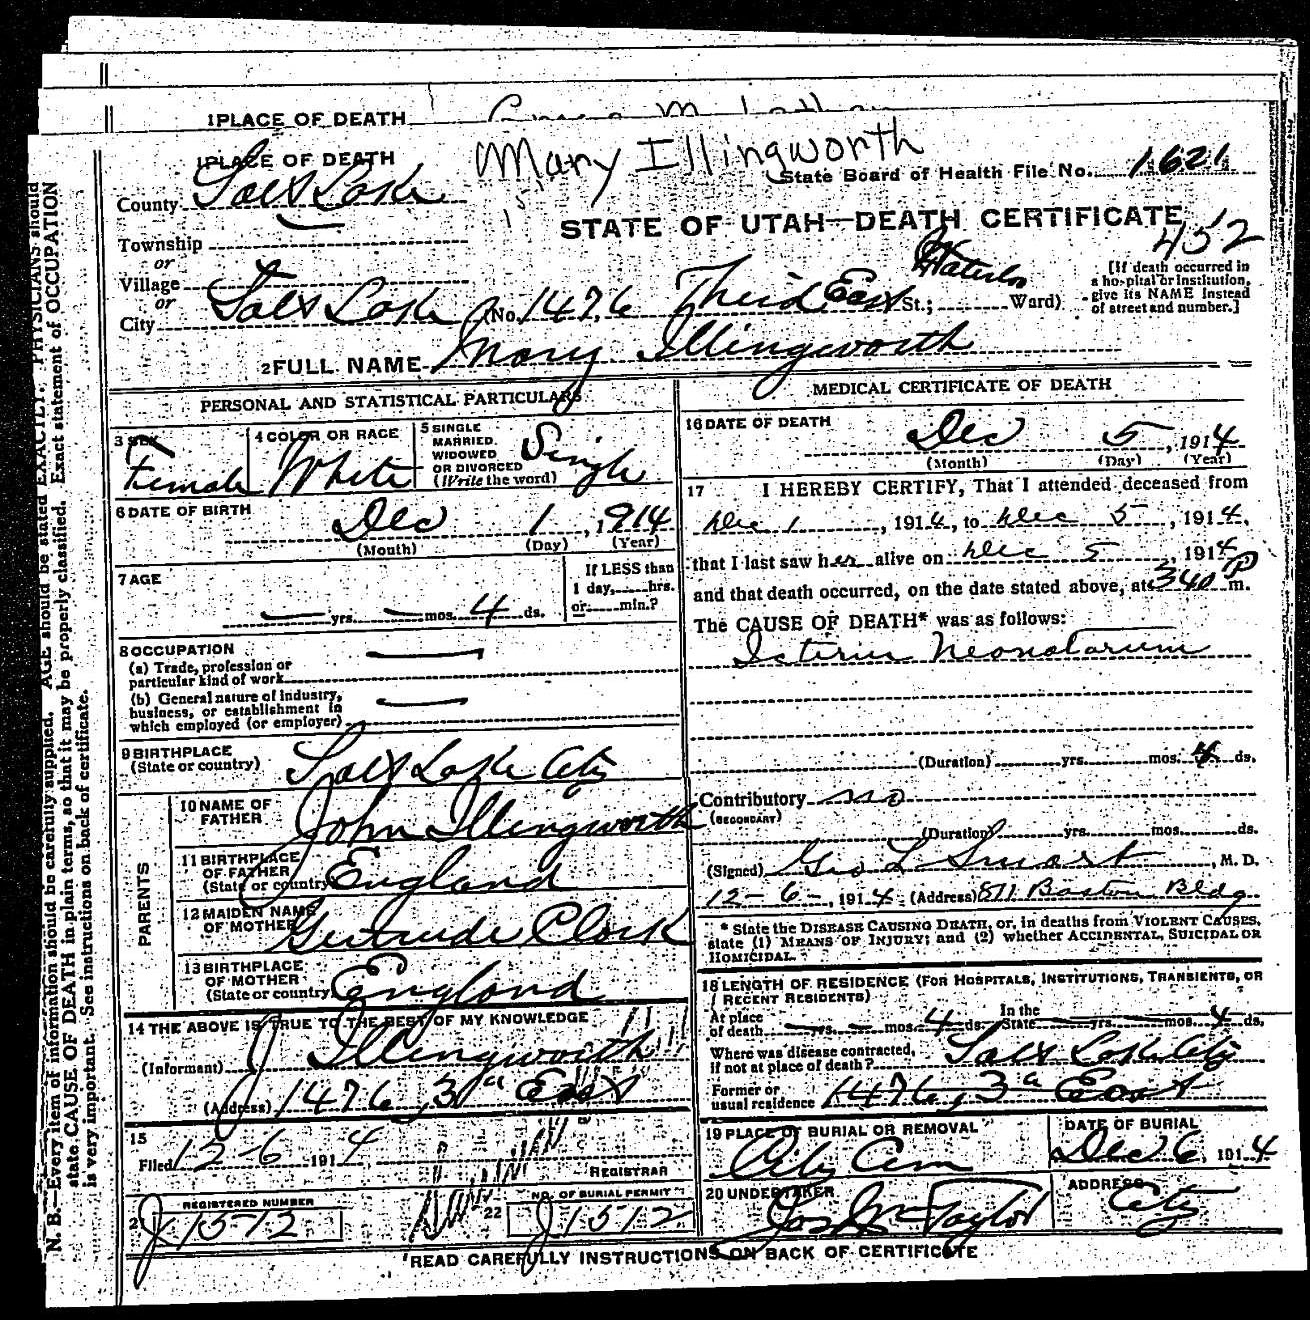 1 PLACE OF DEATH
1 PLACE OF DEATH
Mary Illingworth
County Salt Lake
State Board of Health File No. 1621
STATE OF UTAH—DEATH CERTIFICATE
452
Township
or
Village
or
City Salt Lake (No. 1476 Third East St.; Waterloo Ward)
[If death occurred in
a hospital or institution,
give its NAME instead
of street and number.]
2 FULL NAME Mary Illingworth
PERSONAL AND STATISTICAL PARTICULARS
3 SEX
Female
4 COLOR OR RACE
White
5 SINGLE
MARRIED
WIDOWED
OR DIVORCED
(Write the word)
Single
6 DATE OF BIRTH
Dec 1, 1914
(Month) (Day) (Year)
7 AGE
— yrs. — mos. 4 ds.
If LESS than
1 day, hrs.
or min.?
8 OCCUPATION
(a) Trade, profession or
particular kind of work —
(b) General nature of industry,
business, or establishment in
which employed (or employer) —
9 BIRTHPLACE
(State or country) Salt Lake City
PARENTS
10 NAME OF
FATHER John Illingworth
11 BIRTHPLACE
OF FATHER
(State or country) England
12 MAIDEN NAME
OF MOTHER Gertrude Clark
13 BIRTHPLACE
OF MOTHER
(State or country) England
14 THE ABOVE IS TRUE TO THE BEST OF MY KNOWLEDGE
(Informant) J Illingworth
(Address) 1476, 3d East
15
Filed 12-6 1914
REGISTRAR
REGISTERED NUMBER
J 1512
22 NO. OF BURIAL PERMIT
J 1512
MEDICAL CERTIFICATE OF DEATH
16 DATE OF DEATH
Dec 5, 1914
(Month) (Day) (Year)
17 I HEREBY CERTIFY, That I attended deceased from
Dec 1, 1914, to Dec 5, 1914,
that I last saw her alive on Dec 5, 1914
and that death occurred, on the date stated above, at 340 P m.
The CAUSE OF DEATH* was as follows:
Icterus Neonatorum
(Duration) yrs. mos. 4 ds.
Contributory no
(SECONDARY)
(Duration) yrs. mos. ds.
(Signed) Geo L Smart, M. D.
12-6-, 1914. (Address) 811 Boston Bldg
* State the DISEASE CAUSING DEATH, or, in deaths from VIOLENT CAUSES,
state (1) MEANS OF INJURY; and (2) whether ACCIDENTAL, SUICIDAL OR
HOMICIDAL.
18 LENGTH OF RESIDENCE (FOR HOSPITALS, INSTITUTIONS, TRANSIENTS, OR
RECENT RESIDENTS)
At place
of death — yrs. — mos. 4 ds.
In the
State yrs. mos. 4 ds.
Where was disease contracted,
if not at place of death? Salt Lake City
Former or
usual residence 1476, 3d East
19 PLACE OF BURIAL OR REMOVAL
City Cem
DATE OF BURIAL
Dec 6, 1914
20 UNDERTAKER
Jos Wm Taylor
ADDRESS
City
READ CAREFULLY INSTRUCTIONS ON BACK OF CERTIFICATE
N. B.—Every item of information should be carefully supplied. AGE should be stated EXACTLY. PHYSICIANS should
state CAUSE OF DEATH in plain terms, so that it may be properly classified. Exact statement of OCCUPATION
is very important. See instructions on back of certificate.